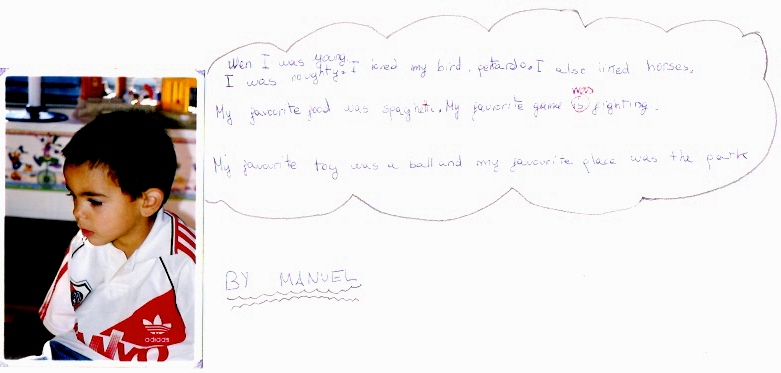 Wen I was young.
I was noughty. I loved my bird, petardo. I also liked horses.
was
My favourite food was spaghetti. My favorite game is fighting.
My favourite toy was a ball and my favourite place was the park
BY MANUEL
adidas